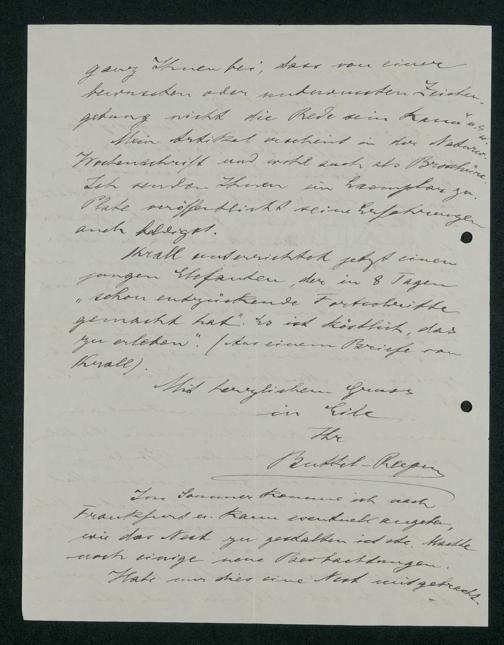 ganz Ihnen bei, dass von einer
bewussten oder unbewussten Zeichen-
gebung nicht die Rede sein kann u.s.w.
Mein Artikel erscheint in der Naturw.
Wochenschrift und wohl auch als Broschüre.
Ich senden Ihnen ein Exemplar zu.
Plate veröffentlicht seine Erfahrungen
auch
Krall unterrichtet jetzt einen
jungen Elefanten, der in 8 Tagen
„schon entzückende Fortschritte
gemacht hat". Es ist köstlich, das
zu erleben". (Aus einem Briefe von
Krall).
Mit herzlichem Gruss
in Eile
Ihr
Buttel-Reepen
Im Sommer komme ich nach
Frankfurt u. kann eventuell angeben,
wie das Nest zu gestalten ist etc. Machte
noch einige neue Beobachtungen.
Habe mir dies eine Nest mitgebracht.